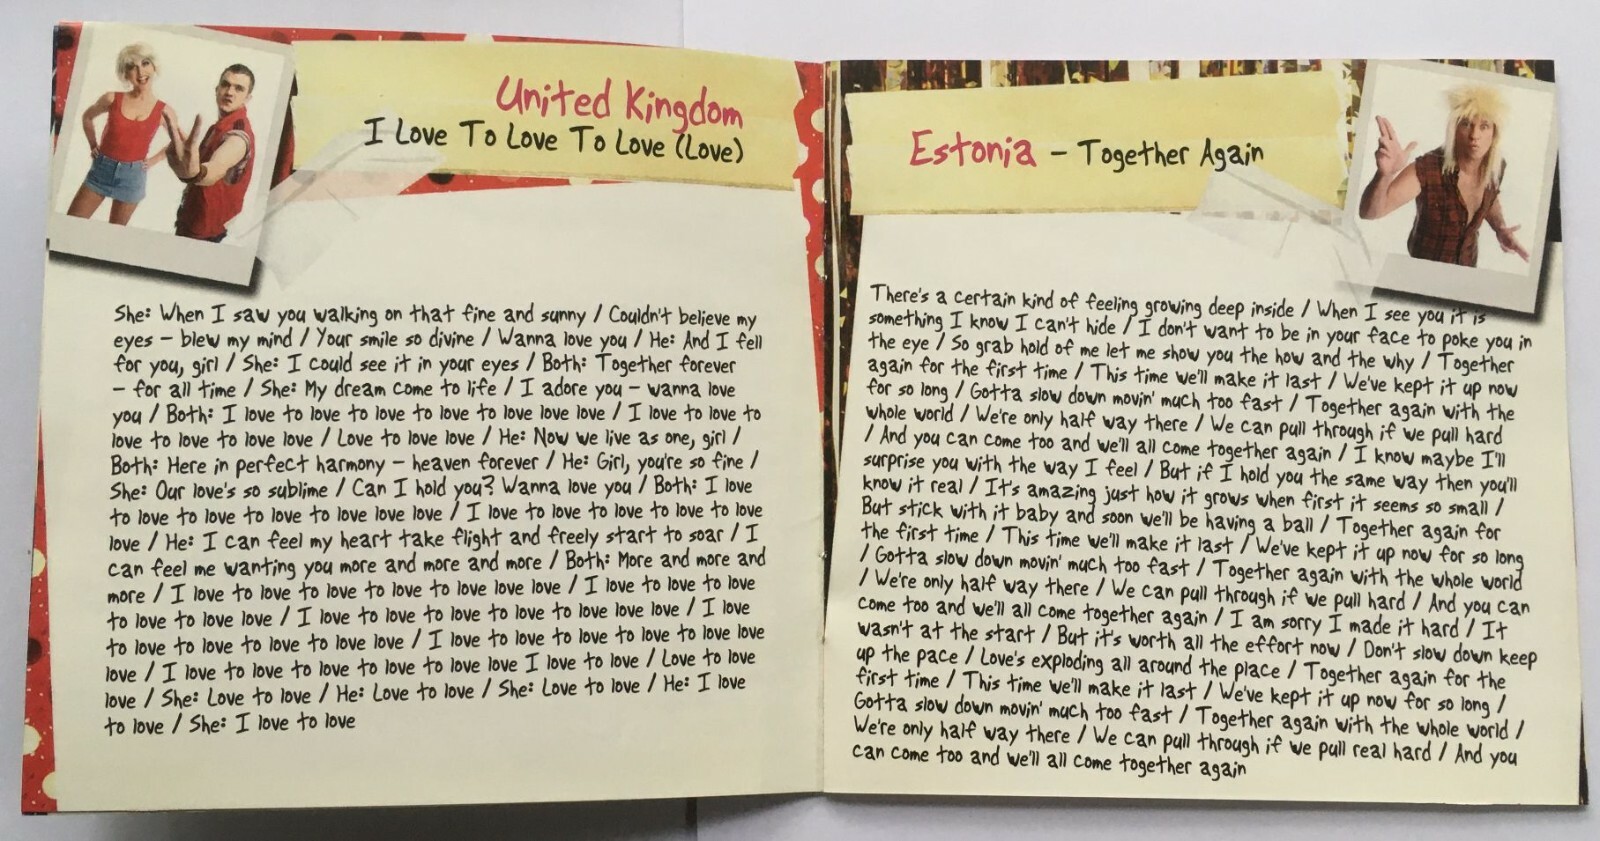 United Kingdom
I Love To Love To Love (Love)
She: When I saw you walking on that fine and sunny / Couldn't believe my
eyes – blew my mind / Your smile so divine / Wanna love you / He: And I fell
for you, girl / She: I could see it in your eyes / Both: Together forever
– for all time / She: My dream come to life / I adore you – wanna love
you / Both: I love to love to love to love to love love love / I love to love to
love to love to love love / Love to love love / He: Now we live as one, girl /
Both: Here in perfect harmony – heaven forever / He: Girl, you're so fine /
She: Our love's so sublime / Can I hold you? Wanna love you / Both: I love
to love to love to love to love love love / I love to love to love to love to love
love / He: I can feel my heart take flight and freely start to soar / I
can feel me wanting you more and more and more / Both: More and more and
more / I love to love to love to love to love love love / I love to love to love
to love to love love / I love to love to love to love to love love love / I love
to love to love to love to love love / I love to love to love to love to love love
love / I love to love to love to love to love love I love to love / Love to love
love / She: Love to love / He: Love to love / She: Love to love / He: I love
to love / She: I love to love
Estonia – Together Again
There's a certain kind of feeling growing deep inside / When I see you it is
something I know I can't hide / I don't want to be in your face to poke you in
the eye / So grab hold of me let me show you the how and the why / Together
again for the first time / This time we'll make it last / We've kept it up now
for so long / Gotta slow down movin' much too fast / Together again with the
whole world / We're only half way there / We can pull through if we pull hard
/ And you can come too and we'll all come together again / I know maybe I'll
surprise you with the way I feel / But if I hold you the same way then you'll
know it real / It's amazing just how it grows when first it seems so small /
But stick with it baby and soon we'll be having a ball / Together again for
the first time / This time we'll make it last / We've kept it up now for so long
/ Gotta slow down movin' much too fast / Together again with the whole world
/ We're only half way there / We can pull through if we pull hard / And you can
come too and we'll all come together again / I am sorry I made it hard / It
wasn't at the start / But it's worth all the effort now / Don't slow down keep
up the pace / Love's exploding all around the place / Together again for the
first time / This time we'll make it last / We've kept it up now for so long /
Gotta slow down movin' much too fast / Together again with the whole world /
We're only half way there / We can pull through if we pull real hard / And you
can come too and we'll all come together again